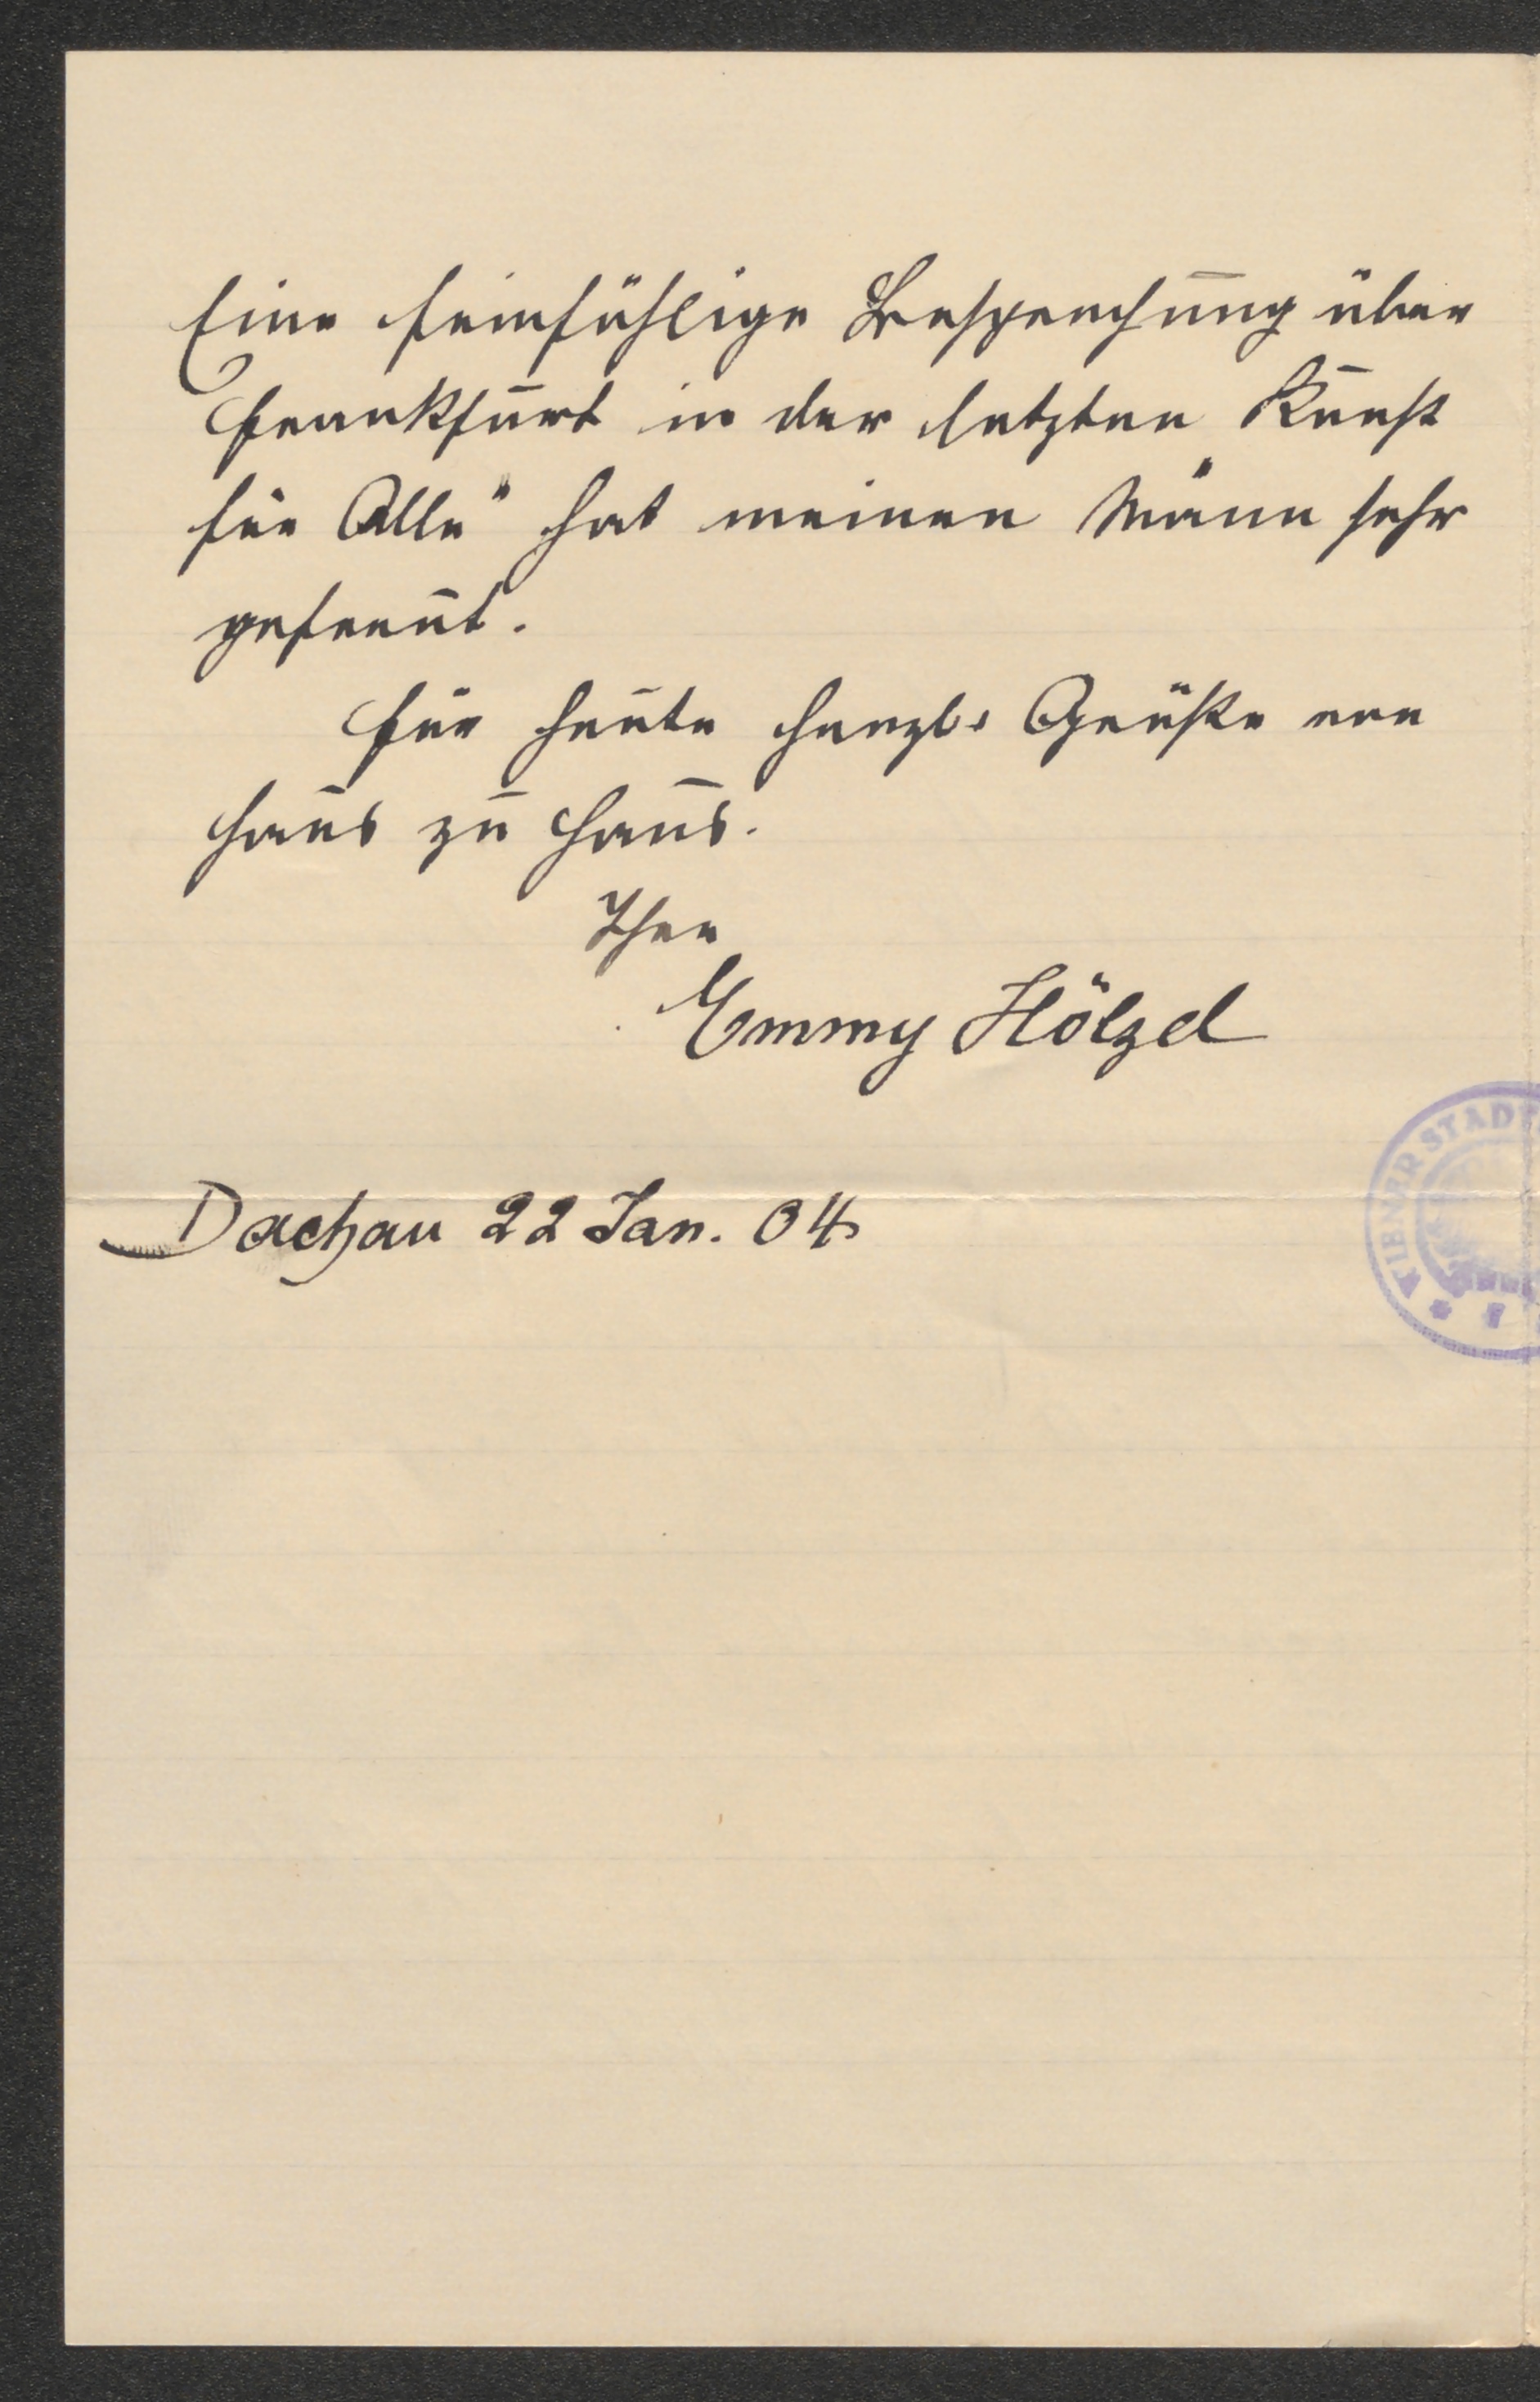 Eine feinfühlige Besprechung über
Frankfurt in der letzten „Kunst
für Alle" hat meinen Mann sehr
gefreut.
Für heute herzl. Grüße von
Haus zu Haus.
Ihre
Emmy Hölzel
Dachau 22 Jan. 04
WIENER STADT